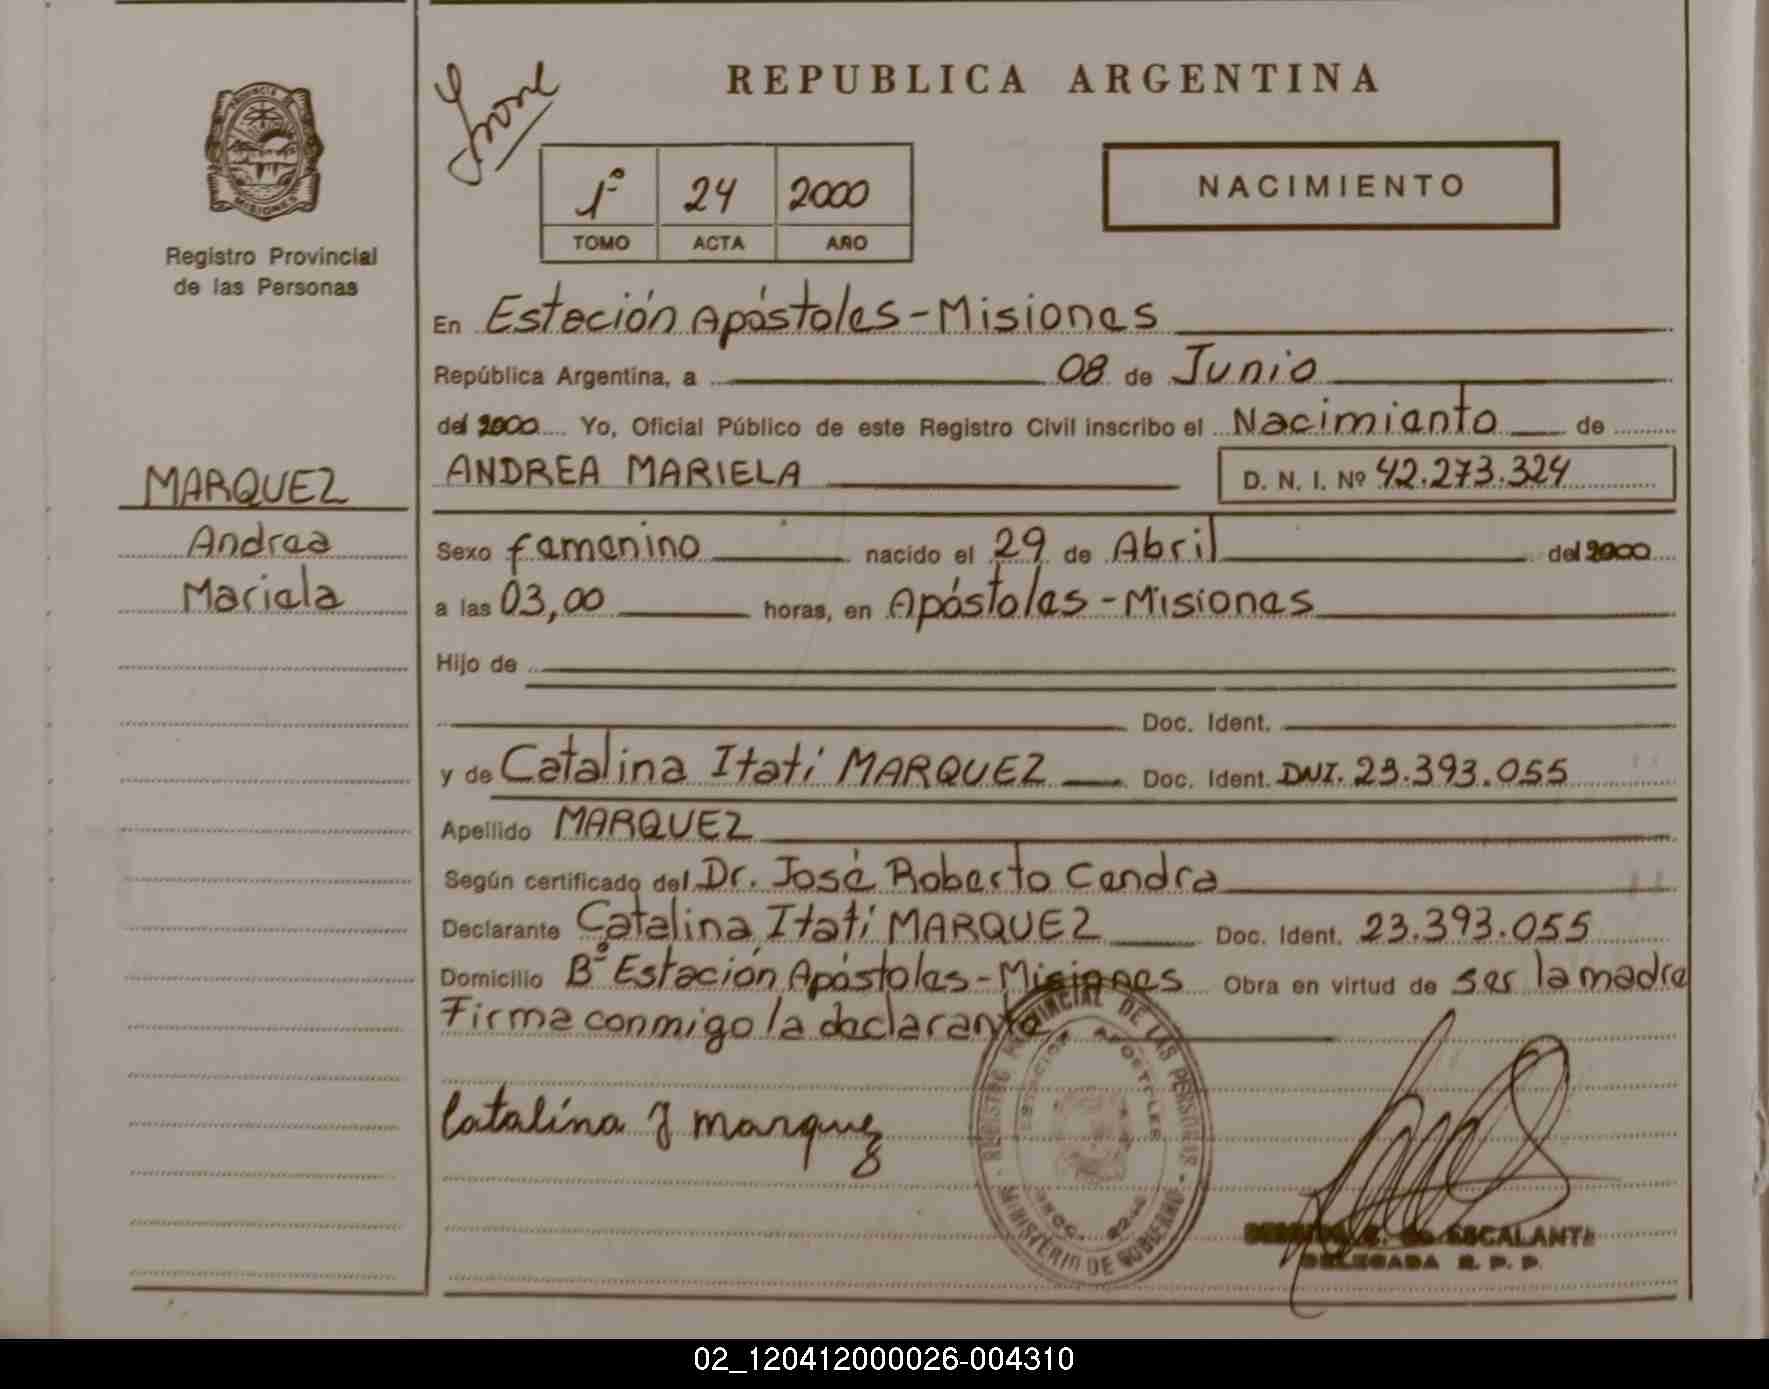 REPUBLICA ARGENTINA
1º 24 2000
TOMO ACTA AÑO
NACIMIENTO
PROVINCIA DE
MISIONES
Registro Provincial
de las Personas
En Estación Apóstoles-Misiones
República Argentina, a 08 de Junio
del 2000 Yo, Oficial Público de este Registro Civil inscribo el Nacimiento de
MARQUEZ
Andrea
Mariela
ANDREA MARIELA D. N. I. Nº 42.273.324
Sexo femenino nacido el 29 de Abril del 2000
a las 03,00 horas, en Apóstoles-Misiones
Hijo de
Doc. Ident.
y de Catalina Itatí MARQUEZ Doc. Ident. DNI. 23.393.055
Apellido MARQUEZ
Según certificado del Dr. José Roberto Cendra
Declarante Catalina Itatí MARQUEZ Doc. Ident. 23.393.055
Domicilio Bº Estación Apóstoles-Misiones Obra en virtud de ser la madre
Firma conmigo la declarante
Catalina I Marquez
REGISTRO PROVINCIAL DE LAS PERSONAS
MINISTERIO DE GOBIERNO
ESTACION APOSTOLES
ESCALANTE
DELEGADA R. P. P.
02_120412000026-004310